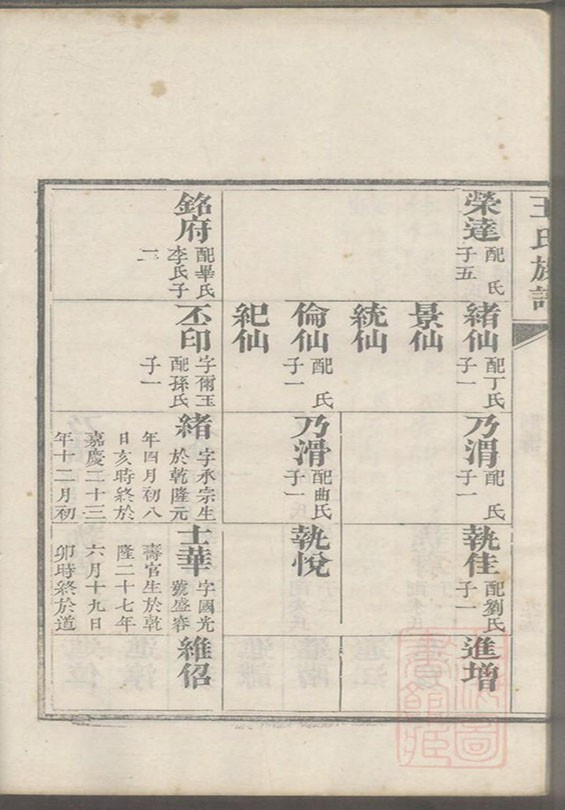 王氏族譜
榮達
配 氏
子五
銘府
配畢氏
李氏子
二
緒仙
配丁氏
子一
景仙
統仙
倫仙
配 氏
子一
紀仙
丕印
字爾玉
配孫氏
子一
乃渭
配 氏
子一
乃滑
配曲氏
子一
緒
字承宗生
於乾隆元
年四月初八
日亥時終於
嘉慶二十三
年十二月初
執佳
配劉氏
子一
執悅
士華
字國光
號盛容
壽官生於乾
隆二十七年
六月十九日
卯時終於道
進增
維侶